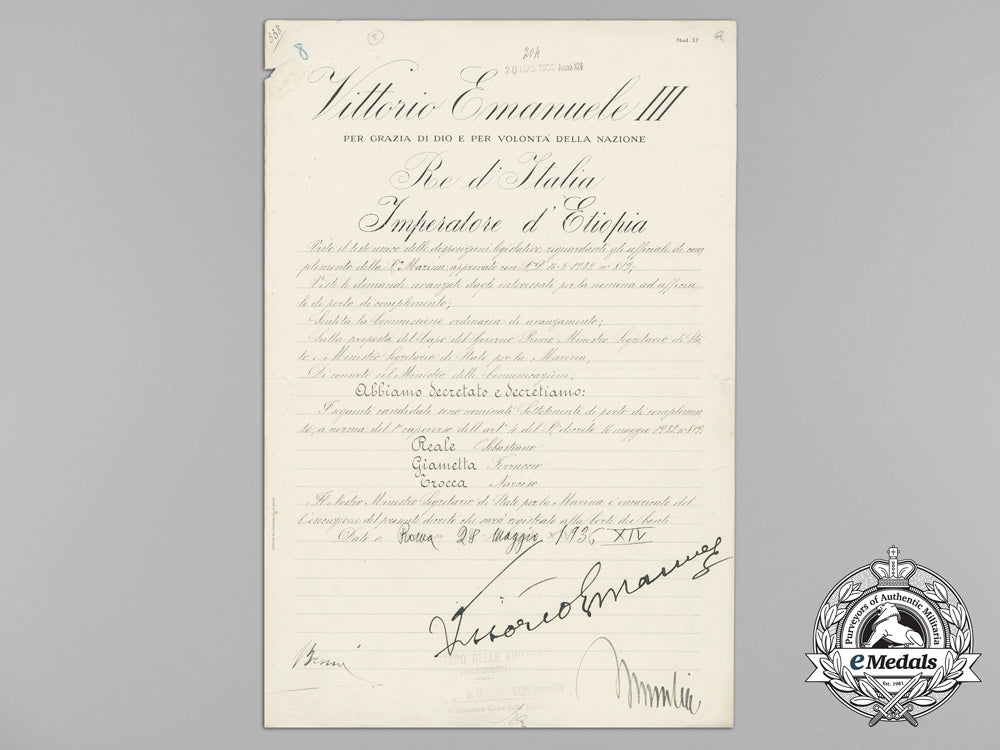 338
8
5
Mod. 57
204
20 LUG. 1936 Anno XIV
Vittorio Emanuele III
PER GRAZIA DI DIO E PER VOLONTA' DELLA NAZIONE
Re d'Italia
Imperatore d'Etiopia
Visto il testo unico delle disposizioni legislative riguardanti gli ufficiali di com
plemento della Ra Marina, approvato con R.D. 16-5-1932 no 819;
Viste le domande avanzate dagli interessati per la nomina ad ufficia
le di porto di complemento;
Sentita la Commissione ordinaria di avanzamento;
Sulla proposta del Capo del Governo Primo Ministro Segretario di Sta
to e Ministro Segretario di Stato per la Marina,
Di concerto col Ministro delle Comunicazioni;
Abbiamo decretato e decretiamo:
I seguenti candidati sono nominati Sottotenenti di porto di complemen
to, a norma del 1o capoverso dell'arto 4 del Ro decreto 16 maggio 1932 no 819.
Reale Sebastiano
Giametta Ferruccio
Trocca Narciso
Il Nostro Ministro Segretario di Stato per la Marina è incaricato del
l'esecuzione del presente decreto che sarà registrato alla Corte dei Conti.
Dato a Roma 28 maggio 1936 XIV
Vittorio Emanuele
DELLE
1936 Anno XIV
Purveyors of Authentic Militaria
eMedals
Est. 1981